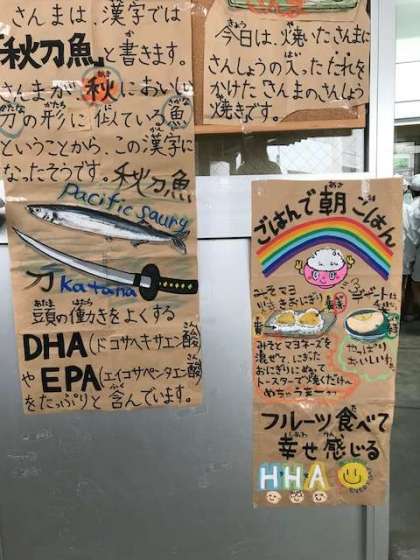 さんまは、漢字では
「秋刀魚」と書きます。
さんまが秋においしい
刀の形に似ている魚
ということから、この漢字に
なったそうです。秋刀魚
Pacific saury
刀 Katana
頭の働きをよくする
DHA(ドコサヘキサエン酸)
や EPA(エイコサペンタエン酸)
をたっぷりと含んでいます。
今日は、焼いたさんまに
さんしょうの入ったたれを
かけたさんまのさんしょう
焼きです。
ごはんで朝ごはん
みそマヨ
みそとマヨネーズを
混ぜて、にぎった
おにぎりにぬって
トースターで焼くだけ
めちゃうまーっ
やっぱり
おいしいね
フルーツ食べて
幸せ感じる
HHA